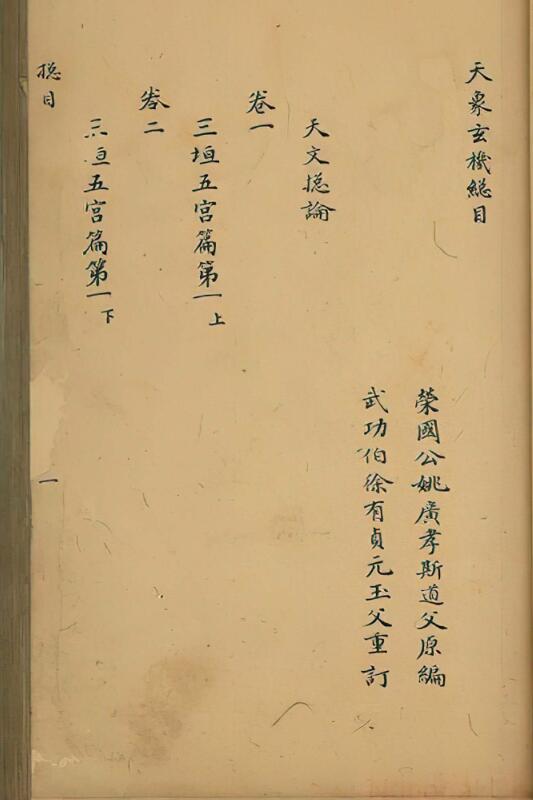 天象玄機緫目
榮國公姚廣孝斯道父原編
武功伯徐有貞元玉父重訂
天文捴論
卷一
三垣五宮篇第一上
卷二
三垣五宮篇第一下
捴目
一